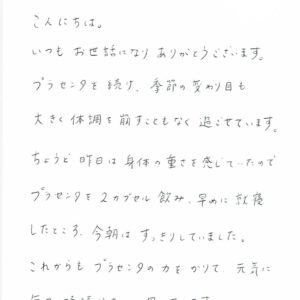 こんにちは。
いつもお世話になりありがとうございます。
プラセンタを続け、季節の変わり目も
大きく体調を崩すこともなく過ごせています。
ちょうど昨日は身体の重さを感じていたので
プラセンタを2カプセル飲み、早めに就寝
したところ、今朝はすっきりしていました。
これからもプラセンタの力をかりて、元気に